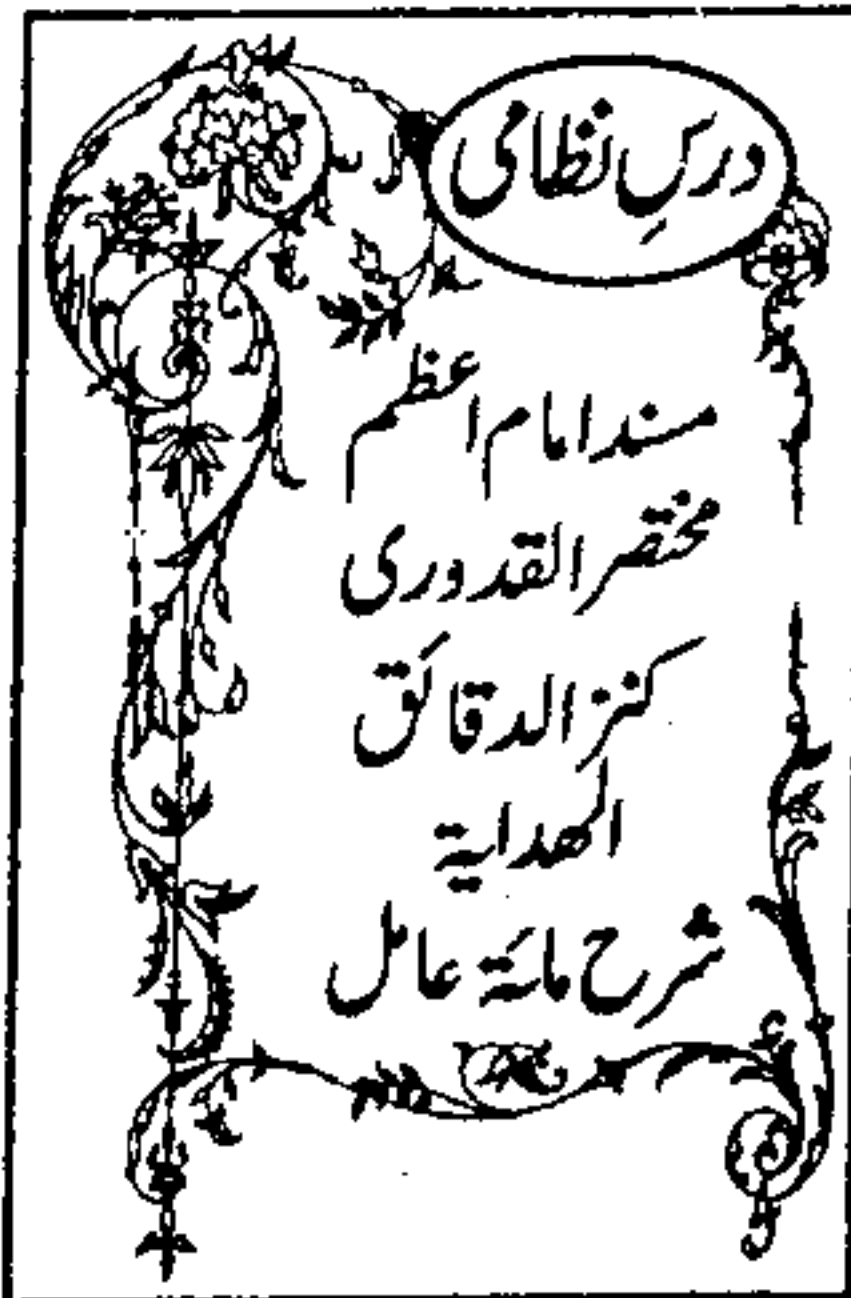 درسِ نظامی
مسند امام اعظم
مختصر القدوری
کنز الدقائق
الھدایۃ
شرح مائۃ عامل